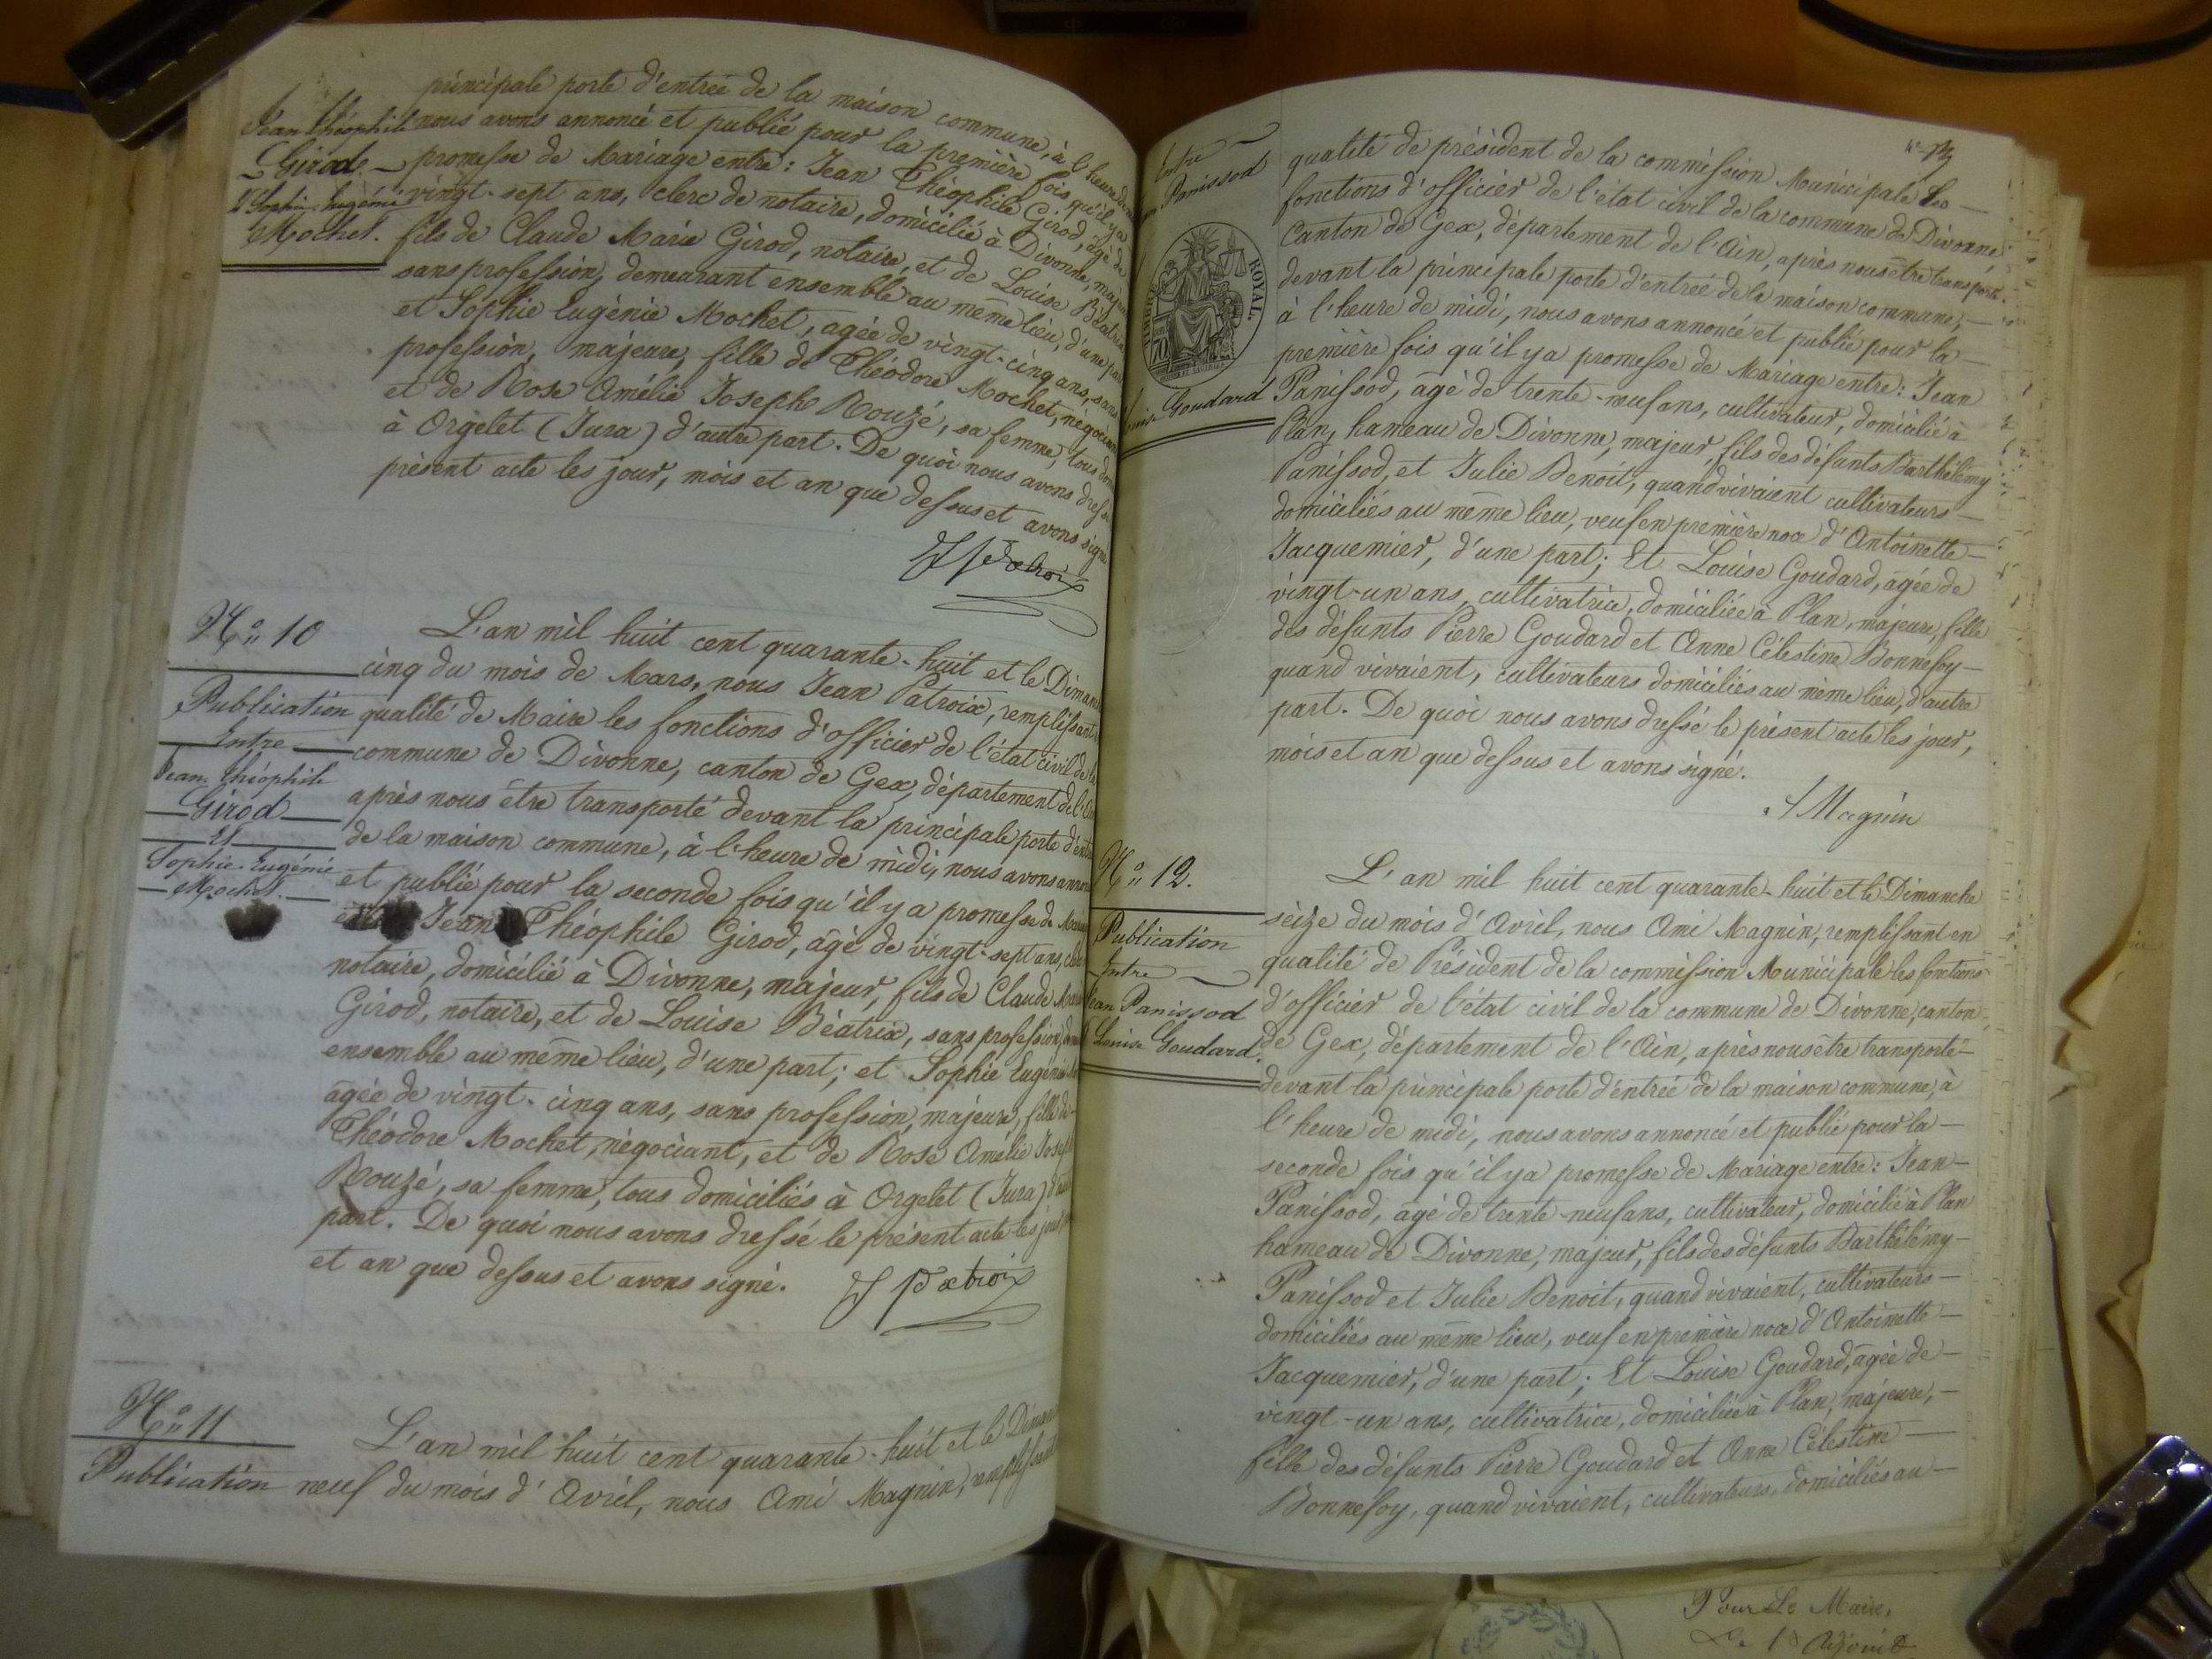 principale porte d'entrée de la maison commune, à l'heure
nous avons annoncé et publié pour la première fois qu'il y a
promesse de Mariage entre : Jean Théophile Girod, âgé de
vingt-sept ans, clerc de notaire, domicilié à Divonne, majeur
fils de Claude Marie Girod, notaire, et de Louise Béatrix
sans profession, demeurant ensemble au même lieu, d'une part
et Sophie Eugénie Mochet, agée de vingt-cinq ans, sans
profession, majeure, fille de Théodore Mochet, négociant
et de Rose Amélie Joseph Rouzé, sa femme, tous
à Orgelet (Jura) d'autre part. De quoi nous avons dressé
présent acte les jour, mois et an que dessus et avons signé
Jean Théophile
Girod
Sophie Eugénie
Mochet.
J Patroix
N° 10
Publication
Entre
Jean Théophile
Girod
Et
Sophie Eugénie
Mochet.
L'an mil huit cent quarante-huit et le
cinq du mois de Mars, nous Jean Patroix, remplissant
qualité de Maire les fonctions d'officier de l'état civil de la
commune de Divonne, canton de Gex, département de l'Ain
après nous être transporté devant la principale porte
de la maison commune, à l'heure de midi, nous avons
et publié pour la seconde fois qu'il y a promesse de
Jean Théophile Girod, âgé de vingt-sept ans,
notaire, domicilié à Divonne, majeur, fils de Claude
Girod, notaire, et de Louise Béatrix, sans profession,
ensemble au même lieu, d'une part; et Sophie Eugénie
agée de vingt-cinq ans, sans profession, majeure, fille de
Théodore Mochet, négociant, et de Rose Amélie Joseph
Rouzé, sa femme, tous domiciliés à Orgelet (Jura)
part. De quoi nous avons dressé le présent acte les jour
et an que dessus et avons signé.
J Patroix
N° 11
Publication
L'an mil huit cent quarante-huit et le
neuf du mois d'Avril, nous Ami Magnin, remplissant
Entre
Panissod
TIMBRE ROYAL.
70
Louise Goudard
qualité de président de la commission Municipale les
fonctions d'officier de l'état civil de la commune de Divonne,
Canton de Gex, département de l'Ain, après nous être transporté
devant la principale porte d'entrée de la maison commune,
à l'heure de midi, nous avons annoncé et publié pour la
première fois qu'il y a promesse de Mariage entre : Jean
Panissod, âgé de trente-neuf ans, cultivateur, domicilié à
Plan, hameau de Divonne, majeur, fils des défunts Barthélémy
Panissod, et Julie Benoit, quand vivaient cultivateurs
domiciliés au même lieu, veuf en première noce d'Antoinette
Jacquemier, d'une part; Et Louise Goudard, agée de
vingt-un ans, cultivatrice, domiciliée à Plan, majeure, fille
des défunts Pierre Goudard et Anne Célestine Bonnefoy
quand vivaient, cultivateurs domiciliés au même lieu, d'autre
part. De quoi nous avons dressé le présent acte les jour,
mois et an que dessus et avons signé.
A Magnin
N° 12.
Publication
Entre
Jean Panissod
Louise Goudard.
L'an mil huit cent quarante-huit et le Dimanche
seize du mois d'Avril, nous Ami Magnin, remplissant en
qualité de Président de la commission Municipale les fonctions
d'officier de l'état civil de la commune de Divonne, canton
de Gex, département de l'Ain, après nous être transporté
devant la principale porte d'entrée de la maison commune, à
l'heure de midi, nous avons annoncé et publié pour la
seconde fois qu'il y a promesse de Mariage entre : Jean
Panissod, agé de trente-neuf ans, cultivateur, domicilié à Plan
hameau de Divonne, majeur, fils des défunts Barthélémy
Panissod et Julie Benoit, quand vivaient, cultivateurs
domiciliés au même lieu, veuf en première noce d'Antoinette
Jacquemier, d'une part; Et Louise Goudard, agée de
vingt-un ans, cultivatrice, domiciliée à Plan, majeure,
fille des défunts Pierre Goudard et Anne Célestine
Bonnefoy, quand vivaient, cultivateurs, domiciliés au
Pour Le Maire,
Adjoint